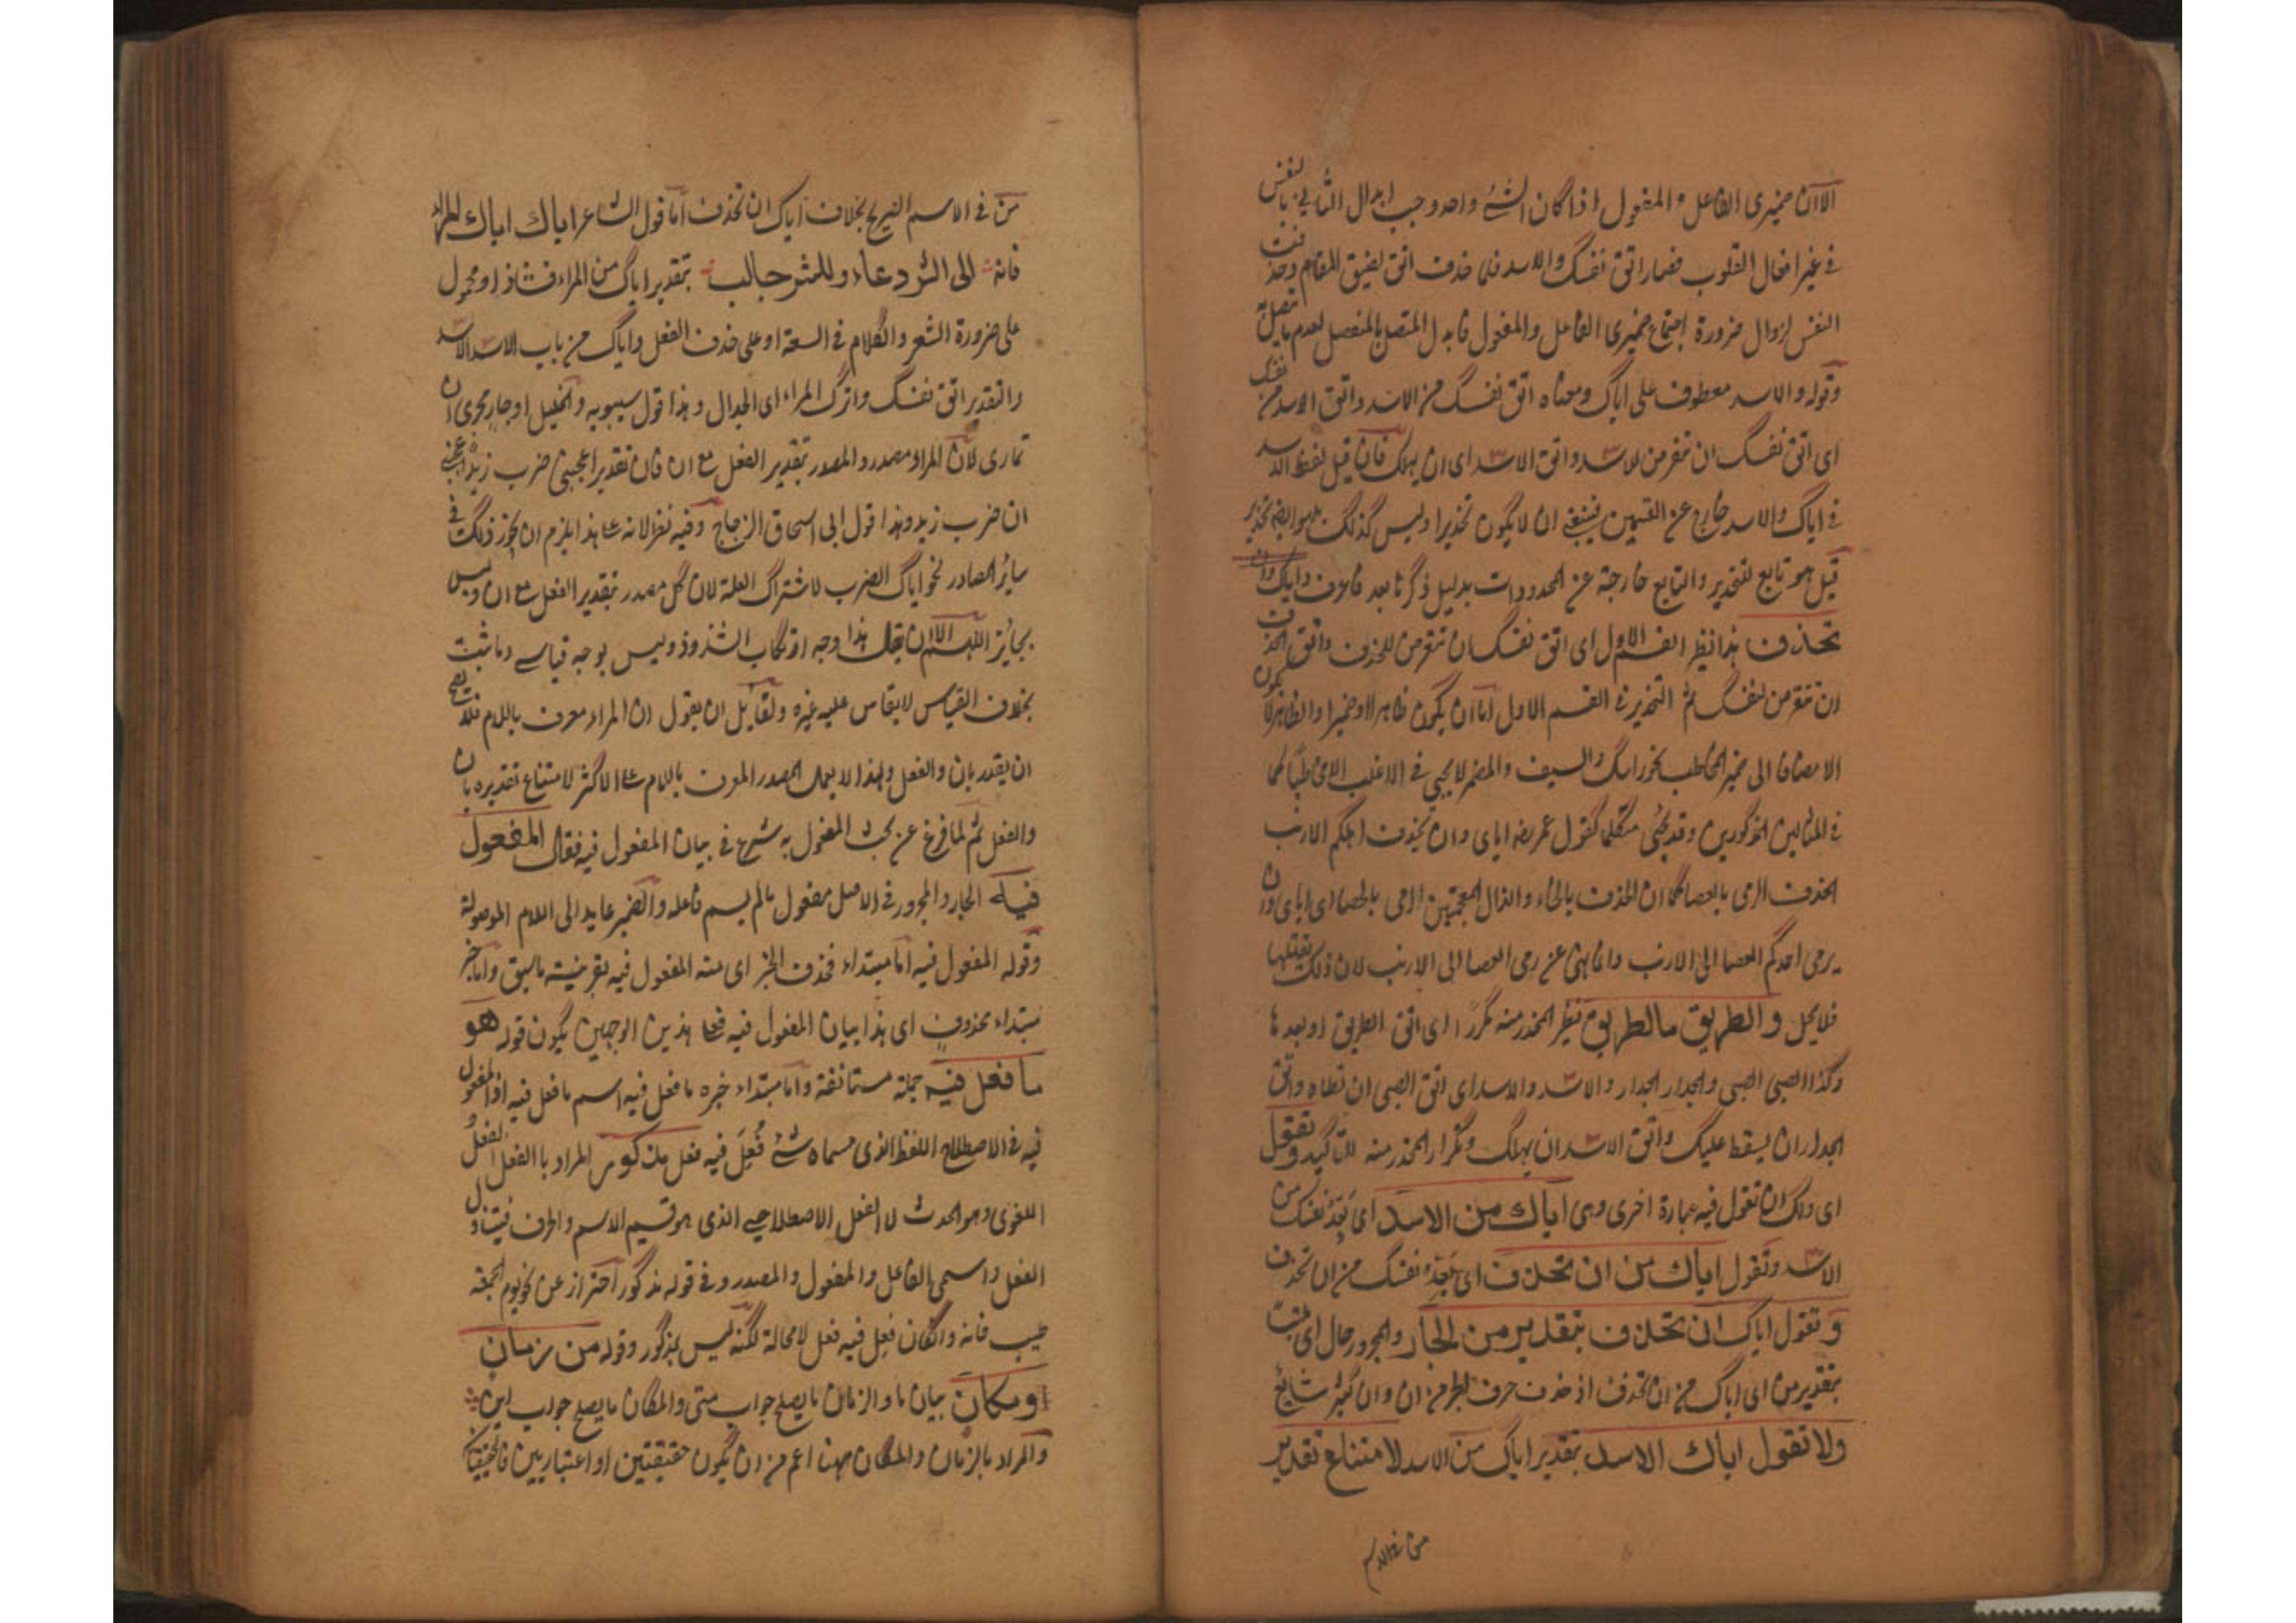 الا ان ضميرى الفاعل والمفعول اذا كان الشئ واحد وجب ابدال الثانى بالنفس
فى غير افعال القلوب فصار اتق نفسك والاسد فلما حذف اتق لضيق المقام وحذفت
النفس لزوال ضرورة اجتماع ضميرى الفاعل والمفعول فابدل المتصل بالمنفصل لعدم ما يتصل به
وقوله والاسد معطوف على اياك ومعناه اتق نفسك من الاسد واتق الاسد من نفسك
اى اتق نفسك ان تتعرض للاسد واتق الاسد اى ان يهلك فان قيل لفظ الاسد
فى اياك والاسد خارج عن القسمين فينبغى ان لا يكون تحذيرا وليس كذلك بل هو ايضا تحذير
قيل هو تابع للتحذير والتابع خارجة عن المحدودات بدليل ذكرها بعد فاعرف واياك وان
تحذف هذا نظير القسم الاول اى اتق نفسك ان تتعرض للحذف واتق الحذف
ان تتعرض لنفسك ثم التحذير فى القسم الاول اما ان يكون ظاهرا او ضميرا والظاهر لا يكون
الا مضافا الى ضمير المخاطب نحو راسك والسيف والمضمر لا يجيئ فى الاغلب الا مخاطبا كما
فى المثالين المذكورين وقد يجئ متكلما كقول عمر رضه اياى وان يحذف احدكم الارنب
الحذف الرمى بالعصا كما ان الخذف بالخاء والذال المعجمتين الرمى بالحصا اى اياى وان
يرمى احدكم العصا الى الارنب وانما نهى عن رمى العصا الى الارنب لان ذلك يقتلها
فلا يحل والطريق الطريق نظير المحذر منه مكررا اى اتق الطريق او بعد ها
وكذا الصبى الصبى والجدار الجدار والاسد والاسد اى اتق الصبى ان تطاه واتق
الجدار ان يسقط عليك واتق الاسد ان يهلك وتكرار المحذر منه للتاكيد وتقول
اى ولك ان تقول فيه عبارة اخرى وهى اياك من الاسد اى بعد نفسك من
الاسد وتقول اياك من ان تحذف اى بعد نفسك من ان تحذف
وتقول اياك ان تحذف بتقدير من الجار والمجرور حال اى مثبت
بتقدير من اى اياك من ان تحذف اذ حذف حرف الجر من ان وان كثير شايع
ولا تقول اياك الاسد بتقدير اياك من الاسد لامتناع تقدير
من فى الاسم
من فى الاسم الصريح بخلاف اياك ان تحذف اما قول الشاعر اياك اياك المراء
فانه الى الشر دعاء وللشر جالب بتقدير اياك من المراء فشاذ او محمول
على ضرورة الشعر والكلام فى السعة او على حذف الفعل واياك من باب الاسد الاسد
والتقدير اتق نفسك واترك المراء اى الجدال وهذا قول سيبويه والخليل او جار مجرى ان
تمارى لان المراء مصدر والمصدر بتقدير الفعل مع ان فان تقدير اعجبنى ضرب زيد اعجبنى
ان ضرب زيد وهذا قول ابى اسحاق الزجاج وفيه نظر لانه على هذا يلزم ان يجوز ذلك فى
سائر المصادر نحو اياك الضرب لاشتراك العلة لان كل مصدر بتقدير الفعل مع ان وليس
بجائز اللهم الا ان يقال هذا وجه ارتكاب الشذوذ وليس بوجه قياسى وما ثبت
بخلاف القياس لا يقاس عليه غيره ولقائل ان يقول ان المراء معرف باللام فلا يصح
ان يقدر بان والفعل ولهذا لا يعمل المصدر المعرف باللام على الاكثر لامتناع تقديره بان
والفعل ثم لما فرغ عن بحث المفعول به شرع فى بيان المفعول فيه فقال المفعول
فيه الجار والمجرور فى الاصل مفعول ما لم يسم فاعله والضمير عايد الى اللام الموصولة
وقوله المفعول فيه اما مبتداء فحذف الخبر اى منه المفعول فيه بقرينة ما سبق واما خبر
مبتداء محذوف اى هذا بيان المفعول فيه فعلى هذين الوجهين يكون قوله هو
ما فعل فيه جملة مستانفة واما مبتداء خبره ما فعل فيه اسم ما فعل فيه اذ المفعول
فيه فى الاصطلاح اللفظ الذى مسماه شئ فُعِلَ فيه فعل مذكور المراد بالفعل الفعل
اللغوى وهو الحدث لا الفعل الاصطلاحى الذى هو قسيم الاسم والحرف فيتناول
الفعل واسمى الفاعل والمفعول والمصدر وفى قوله مذكور احتراز عن نحو يوم الجمعة
طيب فانه وان كان فعل فيه فعل لا محالة لكنه ليس بمذكور وقوله من زمان
او مكان بيان ما والزمان ما يصلح جواب متى والمكان ما يصلح جواب اين
والمراد بالزمان والمكان ههنا اعم من ان يكون حقيقيين او اعتباريين فالحقيقيان